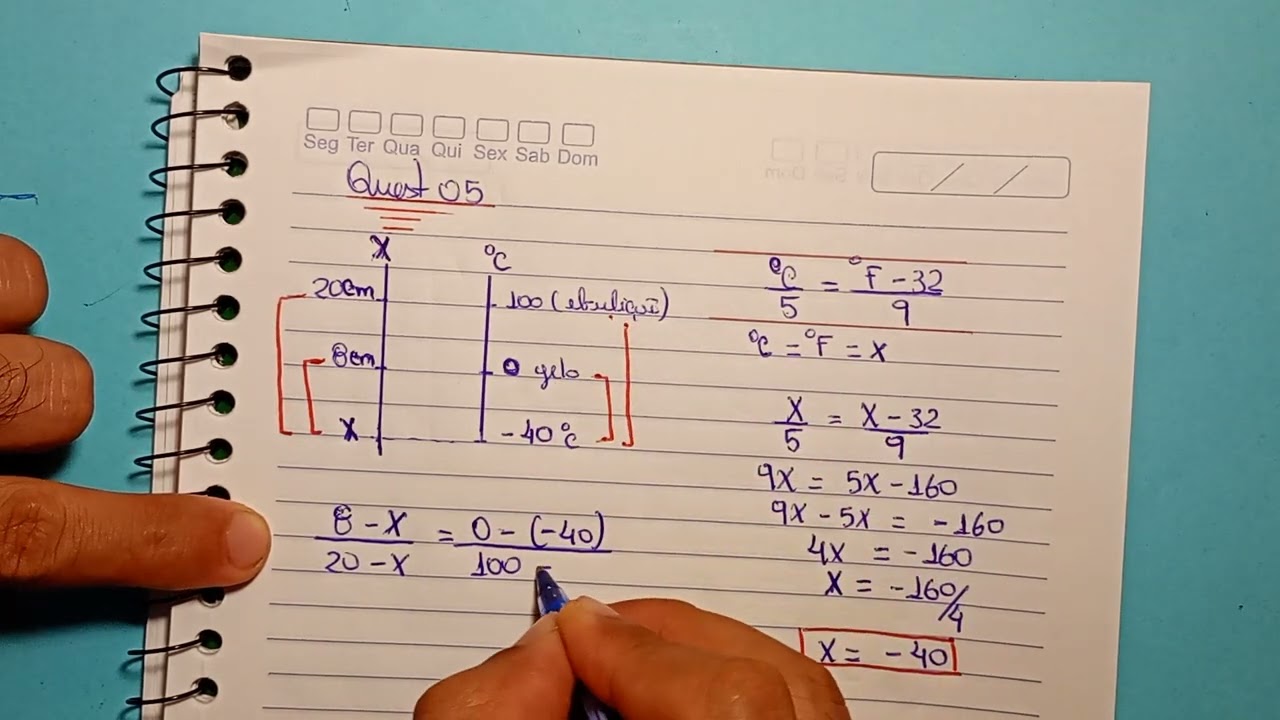 Seg Ter Qua Qui Sex Sab Dom
Quest 05
X °C
20cm 100 (ebuliçõ)
8cm 0 gelo
X -40°C
8 - X = 0 - (-40)
20 - X 100 -
°C = °F - 32
5 9
°C = °F = X
X = X - 32
5 9
9X = 5X - 160
9X - 5X = -160
4X = -160
X = -160/4
X = -40